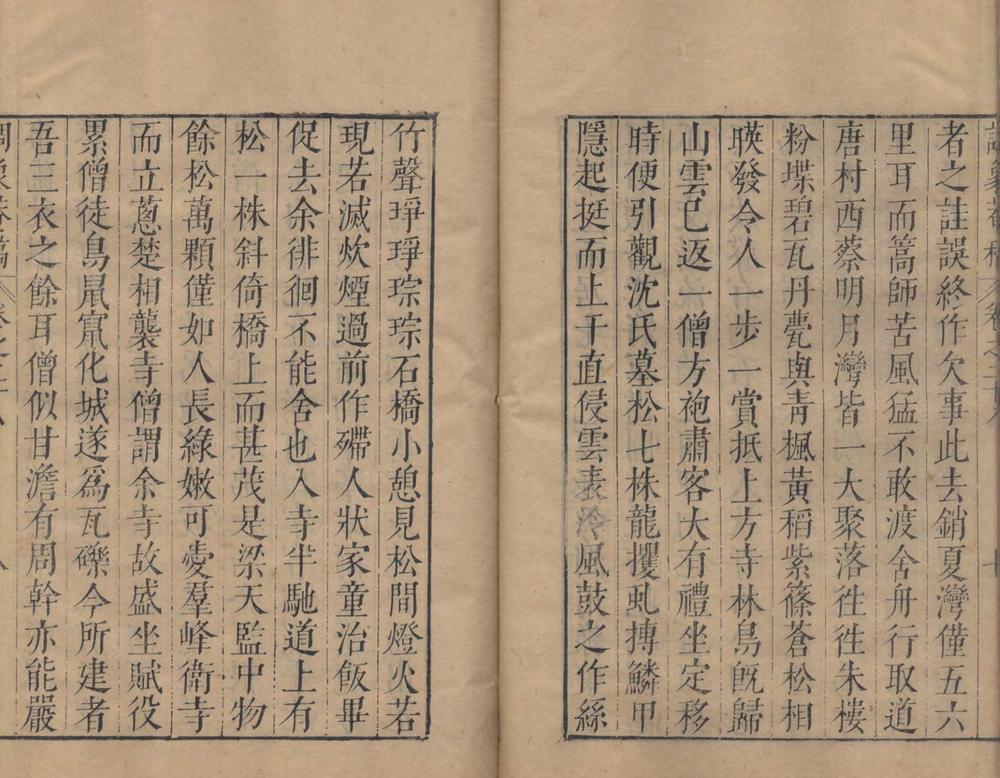 者之註誤終作欠事此去銷夏灣僅五六
里耳而篙師苦風猛不敢渡舍舟行取道
唐村西蔡明月灣皆一大聚落徃徃朱樓
粉堞碧瓦丹甍與青楓黃稻紫篠蒼松相
暎發令人一步一賞抵上方寺林鳥旣歸
山雲已返一僧方袍肅客大有禮坐定移
時便引觀沈氏墓松七株龍攫虬搏鱗甲
隱起挺而上干直侵雲表泠風鼓之作絲
竹聲琤琤琮琮石橋小憩見松間燈火若
現若滅炊煙過前作殢人狀家童治飯畢
促去余徘徊不能舍也入寺半馳道上有
松一株斜倚橋上而甚茂是梁天監中物
餘松萬顆僅如人長綠嫩可愛羣峰衛寺
而立蔥楚相襲寺僧謂余寺故盛坐賦役
累僧徒鳥鼠竄化城遂爲瓦礫今所建者
吾三衣之餘耳僧似甘澹有周幹亦能嚴